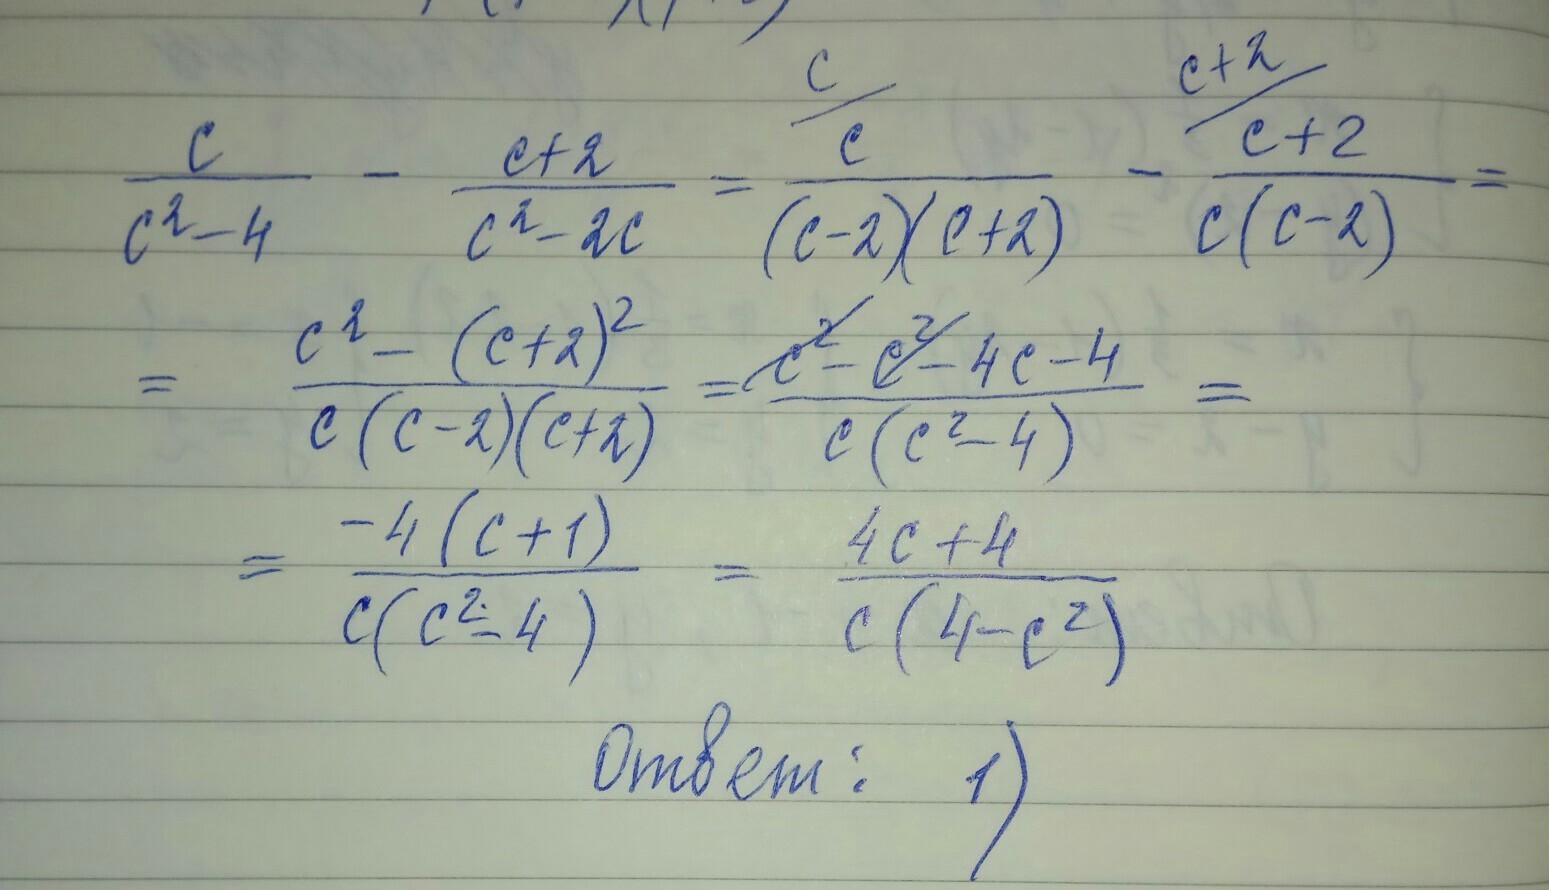 c/ c+2/
c/(c²-4) - (c+2)/(c²-2c) = c/((c-2)(c+2)) - (c+2)/(c(c-2)) =
= (c²-(c+2)²)/(c(c-2)(c+2)) = (c²-c²-4c-4)/(c(c²-4)) =
= -4(c+1)/(c(c²-4)) = (4c+4)/(c(4-c²))
Ответ: 1)